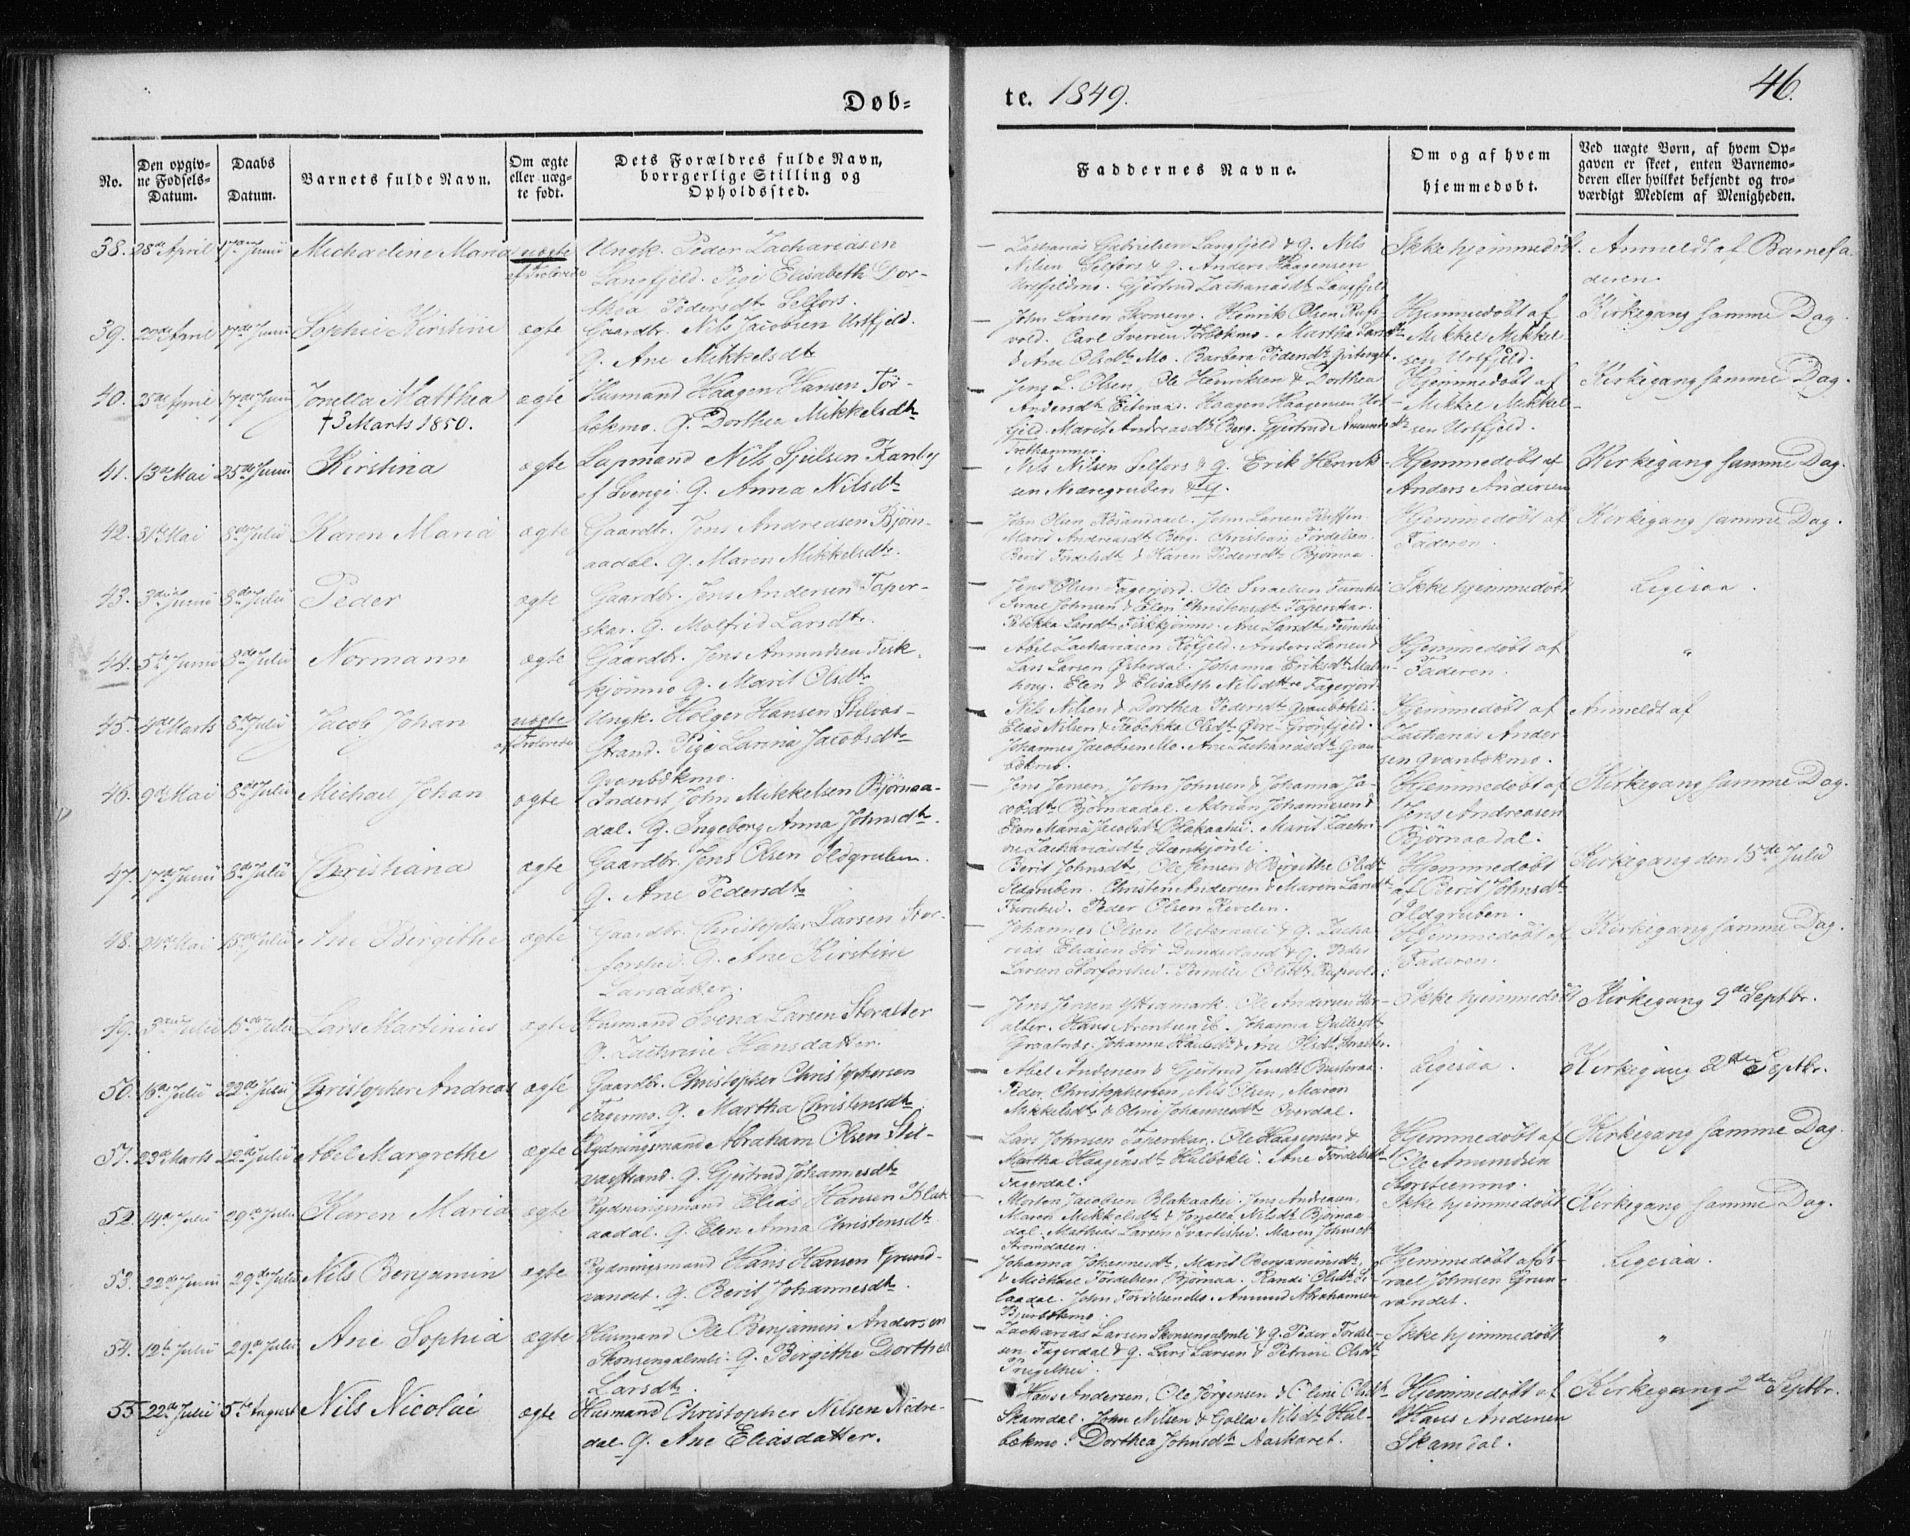 Døb=
te. 1849.
46.
No.
Den opgiv=
ne Fødsels=
Datum.
Daabs
Datum.
Barnets fulde Navn.
Om ægte
eller uæg=
te født.
Dets Forældres fulde Navn,
borrgerlige Stilling og
Opholdssted.
Faddernes Navne.
Om og af hvem
hjemmedøbt.
Ved uægte Børn, af hvem Op=
gaven er skeet, enten Barnemo=
deren eller hvilket bekjendt og tro=
værdigt Medlem af Menigheden.
38. 28de April 17de Junii Michaeline Maria uægte Ungk. Peder Zachariasen
af Trolovede Langfjeld. Pige Elisabeth Dor-
thea Pedersdtr Selfors.
Zacharias Gabrielsen Langfjeld & Q. Nils
Nilsen Selfors & Q. Anders Haagensen
Urtfjeldmo. Gjertrud Zachariasdtr Langfjeld
Ikke hjemmedøbt. Anmeldt af Barnefa
deren
39. 22de April 17de Junii Sophie Kirstine ægte Gaardbr. Nils Jacobsen Urtfjeld.
Q. Ane Mikkelsdtr
John Larsen Skonseng. Henrik Olsen Rufs-
vold. Carl Iversen. Martha Larsdtr
& Ane Olsdtr Mo. Barbara Pedersdtr
Hjemmedøbt af
Mikkel Mikkel-
sen Urtfjeld.
Kirkegang samme Dag.
40. 25de April 17de Junii Jonella Matthea ægte Husmand Haagen Hansen Tør-
† 3 Marts 1850. bækmo. Q. Dorthea Mikkelsdtr
Jens L. Olsen, Ole Henriksen & Dorthea
Andersdtr Eiteraa. Haagen Haagensen Urt
fjeld. Marit Andreasdtr Berg. Gjertrud
Hjemmedøbt af
Mikkel Mikkel-
sen Urtfjeld.
Kirkegang samme Dag.
41. 13de Mai 25de Junii Kirstina ægte Lapmand Nils Sjulsen Kanby
af Sverrige Q. Anna Nilsdtr
Nils Nilsen Selfors & Q. Erik Henrik-
sen Nedregruben & Q.
Hjemmedøbt af
Anders Andersen
Kirkegang samme Dag
42. 31te Mai 8de Julii Karen Maria ægte Gaardbr. Jens Andreasen Bjørn-
aadal. Q. Maren Mikkelsdtr.
John Olsen. John Larsen
Marit Andreasdtr Berg. Christian Fordelsen
Berit Fordelsdtr & Karen Pedersdtr Bjørnaa.
Hjemmedøbt af
Faderen.
Kirkegang samme Dag.
43. 3die Junii 8de Julii Peder ægte Gaardbr. Jens Andersen Taper-
skar. Q. Malfrid Larsdtr.
Jens Olsen Fagerjord. Ole Israelsen Furuhei
Israel Johnsen & Elen Christensdtr Taperskar.
Rebekka Larsdtr Fiskkjønmo. Ane Larsdtr Furuhei
Ikke hjemmedøbt Ligesaa.
44. 5te Junii 8de Julii Normann ægte Gaardbr. Jens Amundsen Fisk-
kjønmo Q. Marit Olsdtr
Abel Zachariasen Røfjeld. Anders Larsen &
Lars Larsen Østerdal. Johanna Eriksdtr
Elen & Elisabeth Nilsdtre Fagerjord
Hjemmedøbt af
Faderen.
"
45. 4de Marts 8de Julii Jacob Johan uægte Ungk. Holger Hansen Stilvas-
af Trolovede Strand. Pige Larina Jacobsdtr
Granbækmo.
Nils Nilsen & Dorthea Pedersdtr Granbækli.
Elias Nilsen & Rebekka Olsdtr Øvre-Grønfjeld.
Johannes Jacobsen Mo. Ane Zachariasdtr Gran
bækmo.
Hjemmedøbt af
Zacharias Ander
sen Granbækmo.
Anmeldt af
46. 9de Mai 8de Julii Michael Johan ægte Inderst John Mikkelsen Bjørnaa-
dal. Q. Ingeborg Anna Johnsdtr.
Jens Jensen, John Johnsen & Johanna Ja-
cobsdtr Bjørnaadal. Adrian Johannesen &
Elen Maria Jacobsdtr Blakaahei. Marit
Zachariasdtr
Hjemmedøbt af
Jens Andreasen
Bjørnaadal.
Kirkegang samme Dag.
47. 17de Junii 8de Julii Christiana ægte Gaardbr. Jens Olsen Ildgruben.
Q. Ane Pedersdtr
Berit Johnsdtr, Ole Jensen & Birgithe Olsdtr
Ildgruben. Christen Andersen & Maren Larsdtr
Furuhei. Peder Olsen Revelen.
Hjemmedøbt
af Berit Johnsdtr
Ildgruben.
Kirkegang den 15de Julii
48. 24de Mai 15de Julii Ane Birgithe ægte Gaardbr. Christopher Larsen Stor-
forshei. Q. Ane Kirstine
Larsdatter.
Johannes Olsen & Q. Zacha-
rias Eliasen Dunderland & Q. Peder
Larsen Storforshei.
Hjemmedøbt af
Faderen.
Kirkegang samme Dag.
49. 3die Julii 15de Julii Lars Martinius ægte Husmand Svend Larsen Storalter
Q. Zachrine Hansdatter.
Jens Jensen Yttramark. Ole Andersen Stor-
alter. Hans Arentsen ib. Johanna
Graatnæs. Johanna Hansdtr & Ane Olsdtr
Ikke hjemmedøbt Kirkegang 9de Septbr.
50. 16de Julii 22de Julii Christopher Andreas ægte Gaardbr. Christopher Christophersen
Fagermo. Q. Martha Christensdtr
Abel Andersen & Gjertrud Jensdtr
Peder Christophersen, Nils Olsen, Maren
Mikkelsdtr & Oline Johannesdtr Overdal.
Ligesaa. Kirkegang 2den Septbr.
51. 23de Marts 22de Julii Abel Margrethe ægte Rydningsmand Abraham Olsen Stil-
vasstrand. Q. Gjertrud Johannesdtr
Lars Johnsen Taperskar. Ole Haagensen &
Martha Haagensdtr Hulbækli. Ane Fordelsdtr
Fagerdal.
Hjemmedøbt af
Ole Amundsen
Storsteenmo.
Kirkegang samme Dag
52. 14de Julii 29de Julii Karen Maria ægte Rydningsmand Elias Hansen Blak
aadal. Q. Elen Anna Christensdtr
Morten Jacobsen Blakaahei. Jens Andreasen,
Maren Mikkelsdtr & Jonella Nilsdtr Bjørnaa
dal. Mathias Larsen Svartishei. Maren Johnsdtr
Strømdalen.
Ikke hjemmedøbt Kirkegang samme Dag.
53. 22de Junii 29de Julii Nils Benjamin ægte Rydningsmand Hans Hansen Grund-
vandet. Q. Berit Johannesdtr.
Johanna Johannesdtr, Marit Benjaminsdtr,
& Michael Fordelsen Bjørnaa. Randi Olsdtr
John Fordelsen do. Amund Abrahamsen
Bjurbækmo
Hjemmedøbt af Is-
rael Johnsen Grun
vandet.
Ligesaa.
54. 12te Julii 29de Julii Ane Sophia ægte Husmand Ole Benjamin Andersen
Skonsengalmli. Q. Birgithe Dorthea
Larsdtr.
Zacharias Larsen Skonsengalmli & Q. Peder Fordel-
sen Fagerdal & Q. Lars Larsen & Petrine Olsdtr
Ikke hjemmedøbt "
55. 22de Julii 5te August Nils Nicolai ægte Husmand Christopher Nilsen Nedre-
dal. Q. Ane Eliasdatter.
Hans Andersen, Ole Jørgensen & Oline Olsdtr
Skamdal. John Nilsen & Golla Nilsdtr Hul-
bækmo. Dorthea Johnsdtr Aaskaret.
Hjemmedøbt af
Hans Andersen
Skamdal.
Kirkegang 2den Septbr.